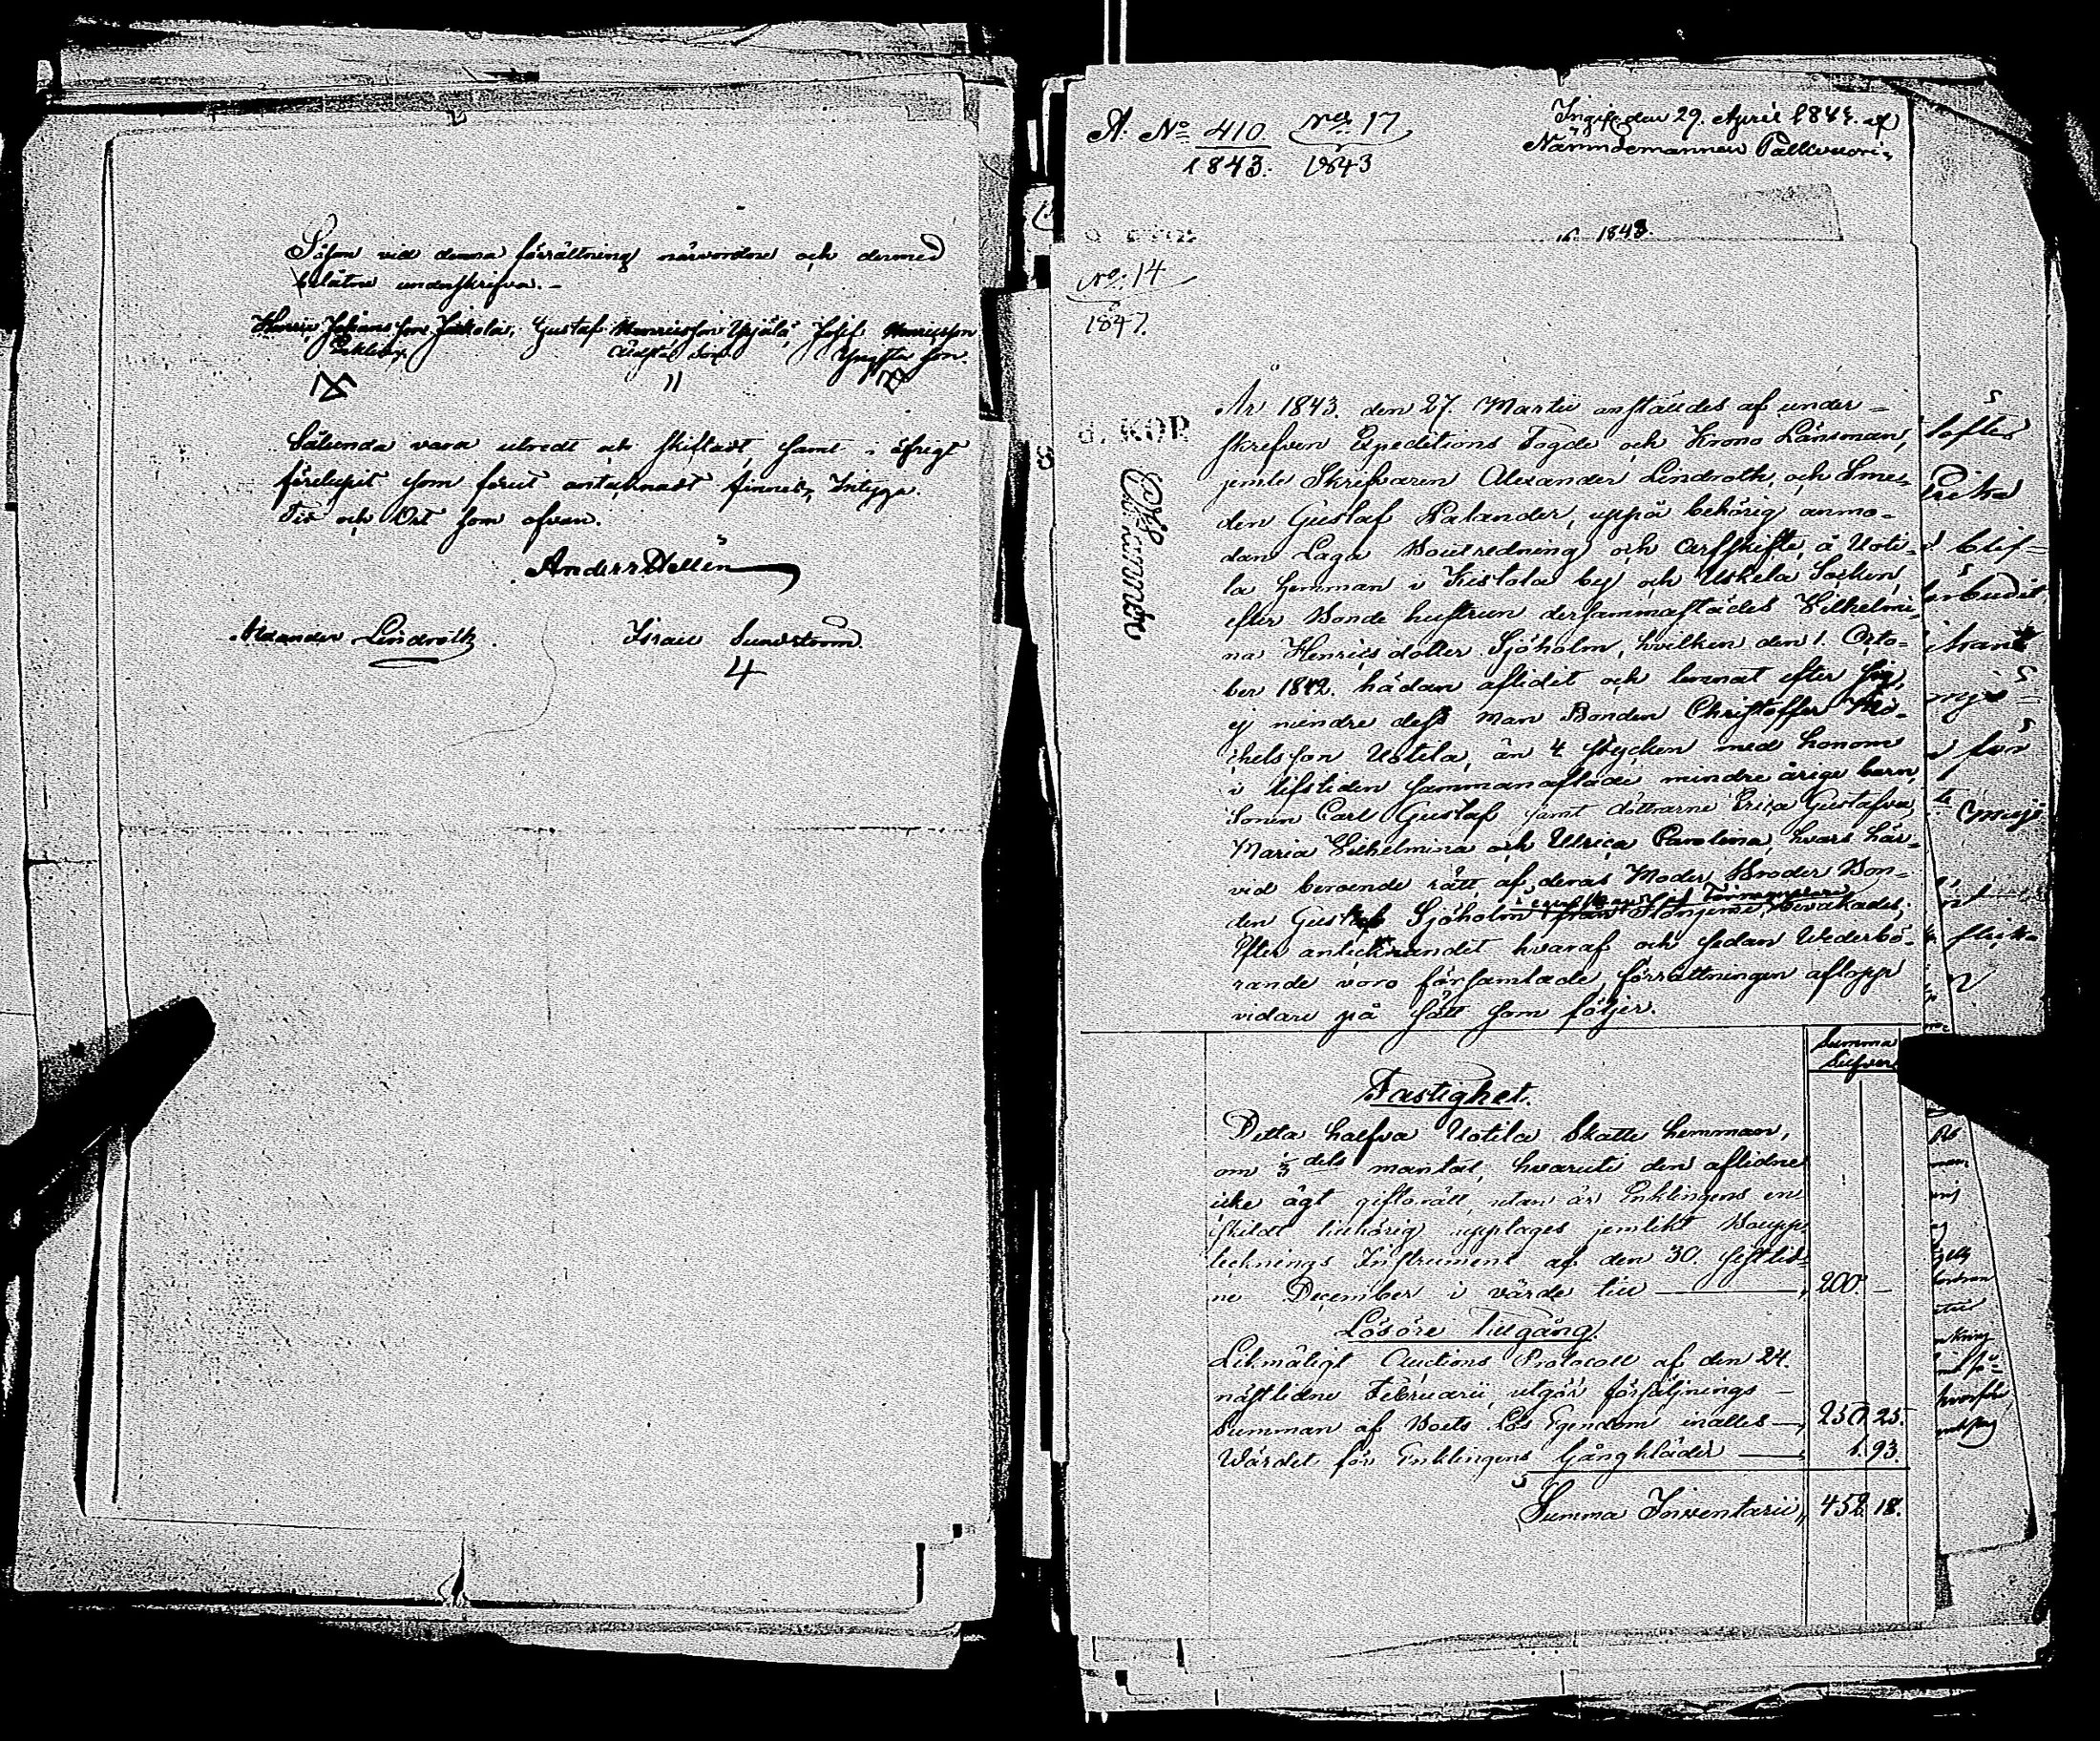 Såsom vid denna förrättning närvarande och dermed
belåtne underskrifva.–
Henric Johansson Jackola, Gustaf Henricsson Yrjälä, Josef Henricsson
Enkling. äldsta son. Yngsta son.
"
Sålunda vara utredt och skiftadt, samt i öfrigt
förelupit som förut antecknadt finnes, Intyga.
Tid och Ort som ofvan.
Anders Hellén
Alexander Lindroth. Israel Sundström.
4
A. No 410 No 17
1843. 1843
Ingif. den 29. April 184 af
Nämndemannen Palkvuori
1843.
No 14
1847.
KOP
År 1843. den 27. Martii anstäldes af under-
skrefven Expeditions Fogde och Krono Länsman,
jemte Skrifvaren Alexander Lindroth, och Sme-
den Gustaf Palander, uppå behörig anmo-
dan Laga Boutredning och Arfskifte å Uoti-
la hemman i Kistola by och Uskela Socken,
efter Bonde hustrun dersammastädes Vilhelmi-
na Henrics dotter Sjöholm, hvilken den 1. Octo-
ber 1842. hädan aflidit och lemnat efter sig,
ej mindre dess man Bonden Christoffer Mi-
chelsson Uotila, än 4 stycken med honom
i lifstiden sammanaflade mindre årige barn,
Sonen Carl Gustaf samt döttrarne Erica Gustafva,
Maria Vilhelmina och Ulrica Carolina, hvars här-
vid beroende rätt af deras Moder Broder Bon-
den Gustaf Sjöholm från bevakades;
Efter antecknandet hvaraf och sedan Wederbö-
rande voro församlade, förrättningen aflopp
vidare på sätt som följer.
Summa
Silfver
Fastighet.
Detta halfva Uotila Skatte hemman,
om 1/3 dels mantal, hvaruti den aflidne
icke ägt giftorätt, utan är Enklingens en
skildt tillhörig upptages jemlikt Boupp
tecknings Instrument af den 30. sistlid-
ne December i värde till — " 200 –
Lösöre Tillgång.
Likmäligt Auctions Protocoll af den 24.
nästlidne Februarii, utgör försäljnings –
Summan af Boets Lös Egendom inalles — " 250 25.
Wärdet för Enklingens Gångkläder — " 1. 93.
Summa Inventarii " 452 18.